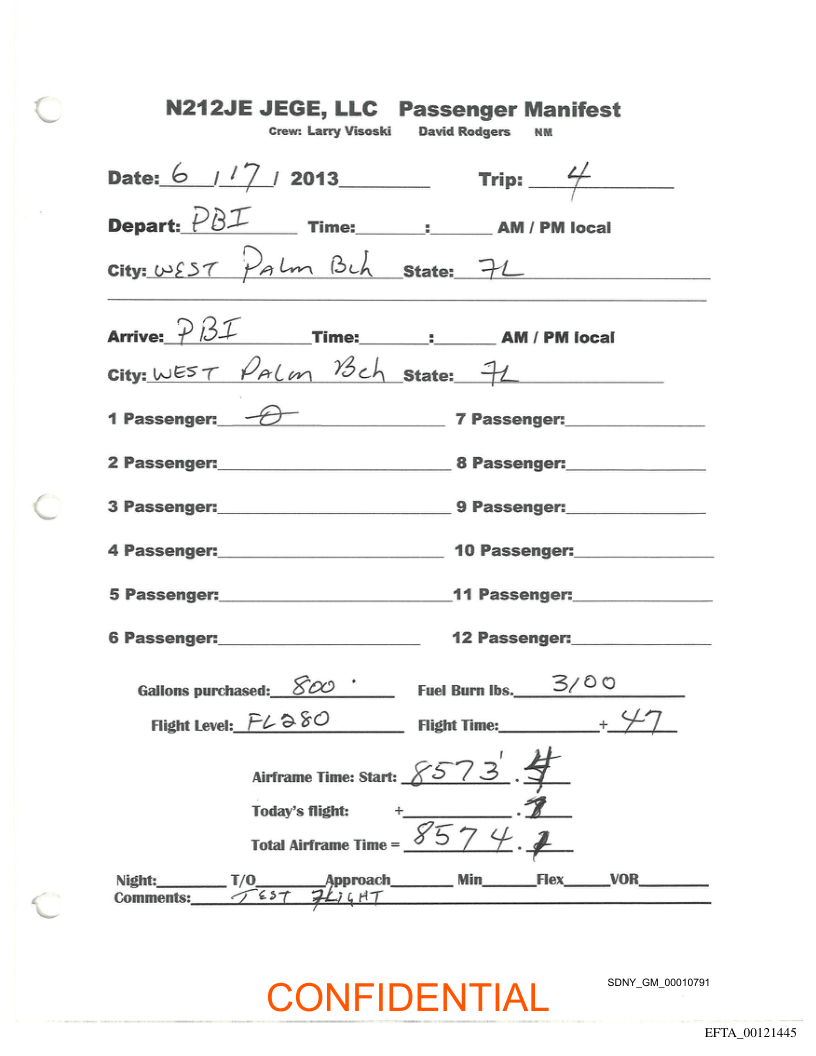 N212JE JEGE, LLC Passenger Manifest
Crew: Larry Visoski David Rodgers NM
Date: 6 / 17 / 2013 Trip: 4
Depart: PBI Time: : AM / PM local
City: WEST Palm Bch State: FL
Arrive: PBI Time: : AM / PM local
City: WEST PALm Bch State: FL
1 Passenger: 0 7 Passenger:
2 Passenger: 8 Passenger:
3 Passenger: 9 Passenger:
4 Passenger: 10 Passenger:
5 Passenger: 11 Passenger:
6 Passenger: 12 Passenger:
Gallons purchased: 800 Fuel Burn lbs. 3100
Flight Level: FL280 Flight Time: + 47
Airframe Time: Start: 8573 .
Today's flight: + .
Total Airframe Time = 8574 .
Night: T/O Approach Min Flex VOR
Comments: TEST FLIGHT
SDNY_GM_00010791
CONFIDENTIAL
EFTA_00121445